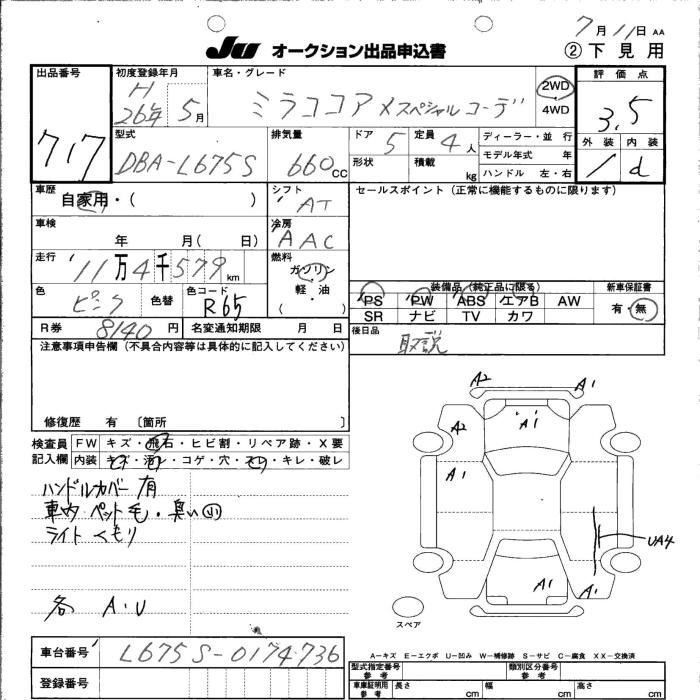 7月11日 AA
JU オークション出品申込書 ②下見用
出品番号 717
初度登録年月 H 26年 5月
車名・グレード ミラココア Xスペシャルコーデ
2WD
4WD
評価点 3.5
外装 1
内装 d
型式 DBA-L675S
排気量 660cc
ドア 5
形状
定員 4人
積載 kg
ディーラー・並行
モデル年式 年
ハンドル 左・右
車歴 自家用・( )
シフト AT
セールスポイント(正常に機能するものに限ります)
車検 年 月( 日)
冷房 AAC
走行 11万4千579km
燃料 ガソリン
軽・油
( )
色 ピンク
色替
色コード R65
装備品(純正品に限る)
新車保証書
PS PW ABS エアB AW
有・無
SR ナビ TV カワ
R券 8140円
名変通知期限 月 日
後日品 取説
注意事項申告欄(不具合内容等は具体的に記入してください)
修復歴 有 〔箇所 〕
検査員 FW キズ・飛石・ヒビ割・リペア跡・X要
記入欄 内装 キズ・汚れ・コゲ・穴・スレ・キレ・破レ
ハンドルカバー有
車内 ペット毛・臭い小
ライトくもり
各 A・U
A2 A1
A2 A1
A1
UA4
A1 A1
スペア
車台番号 L675S-0174736
登録番号
A-キズ E-エクボ U-凹み W-補修跡 S-サビ C-腐食 XX-交換済
型式指定番号 参考
類別区分番号 参考
車庫証明用 参考 長さ cm 幅 cm 高さ cm